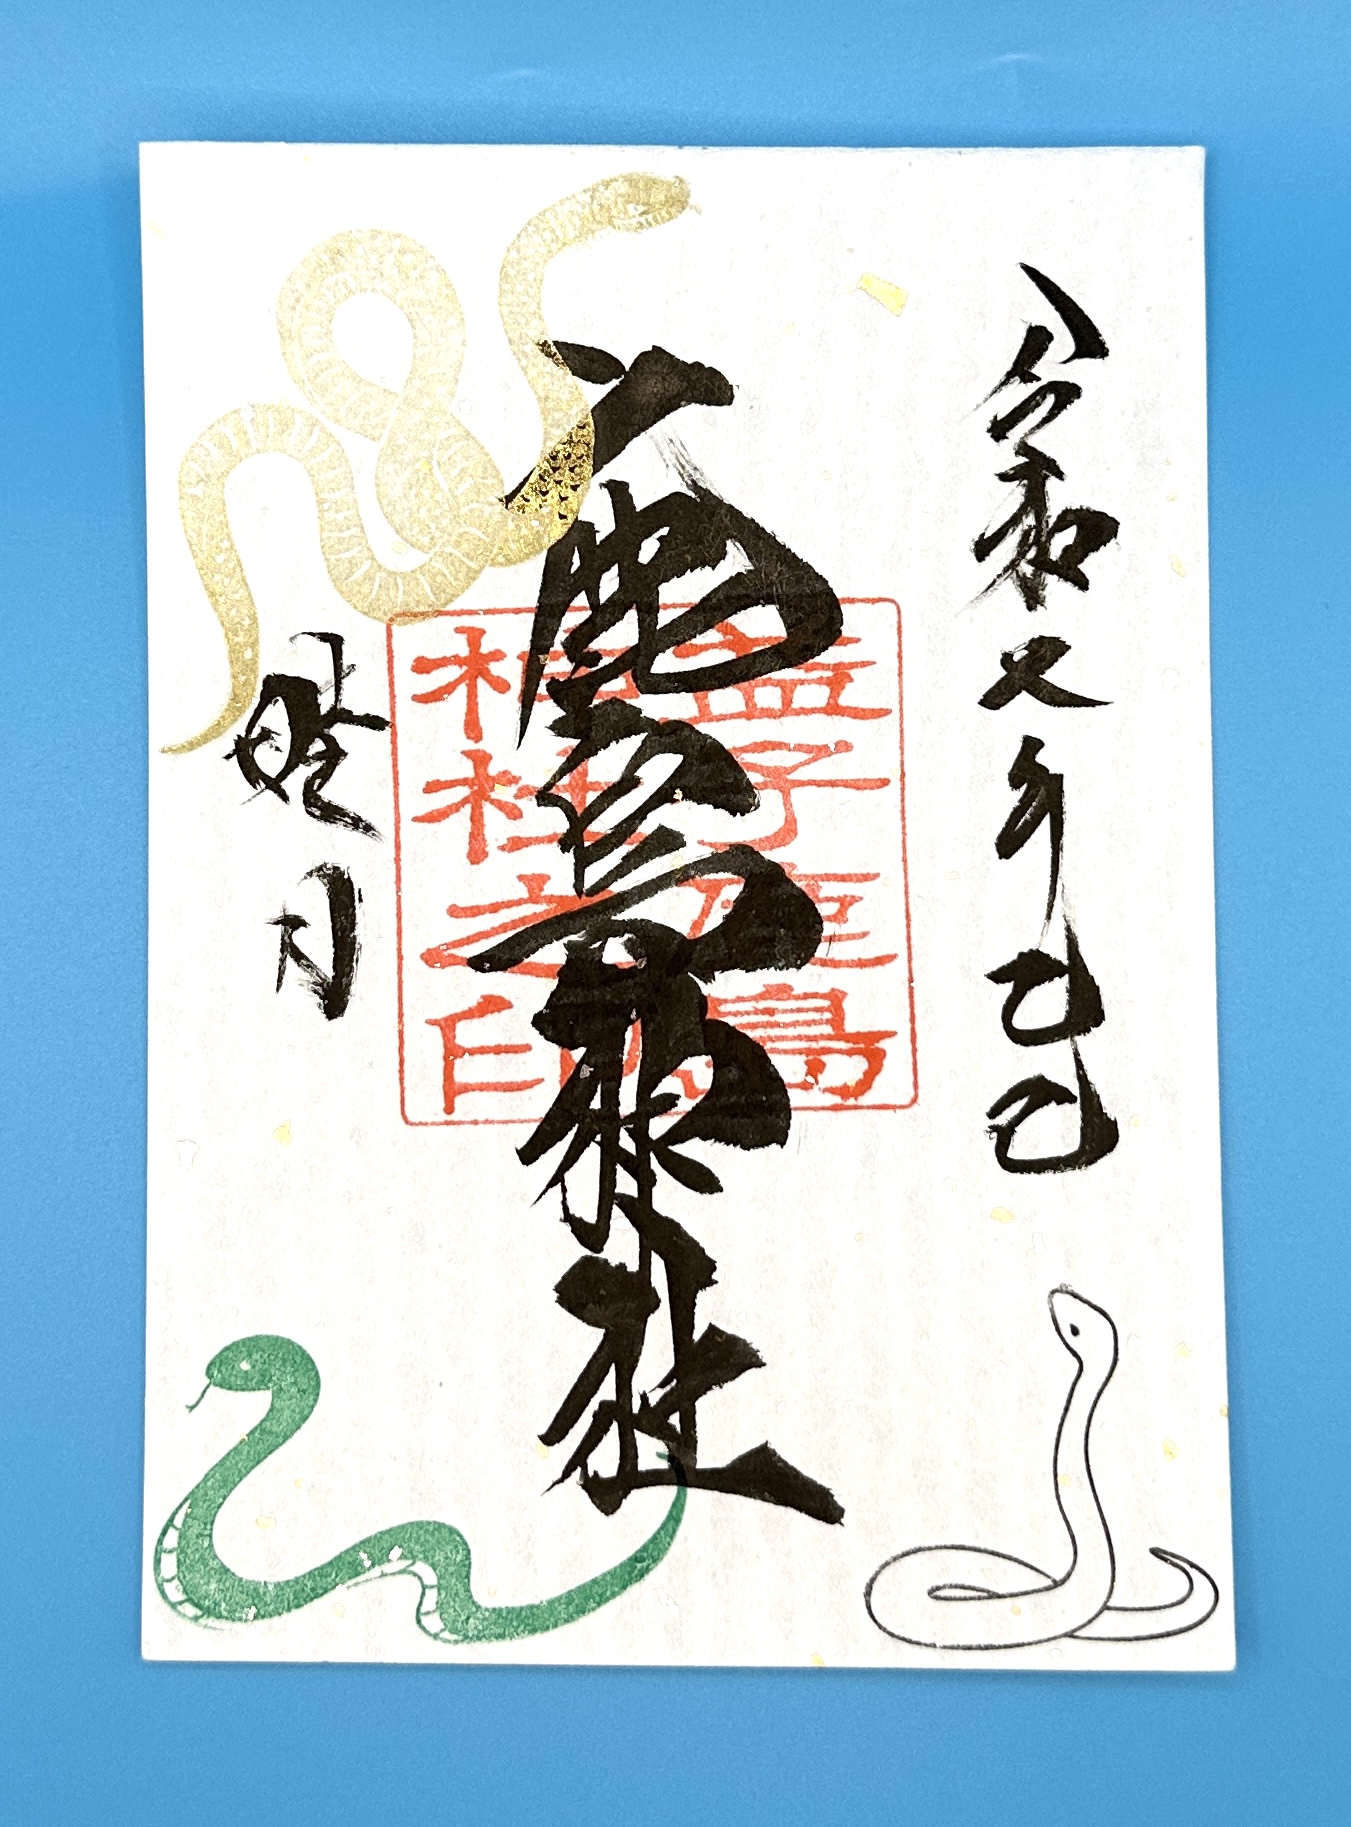 令和七年乙巳
鹿島神社
益子鹿島
神社之印
睦月